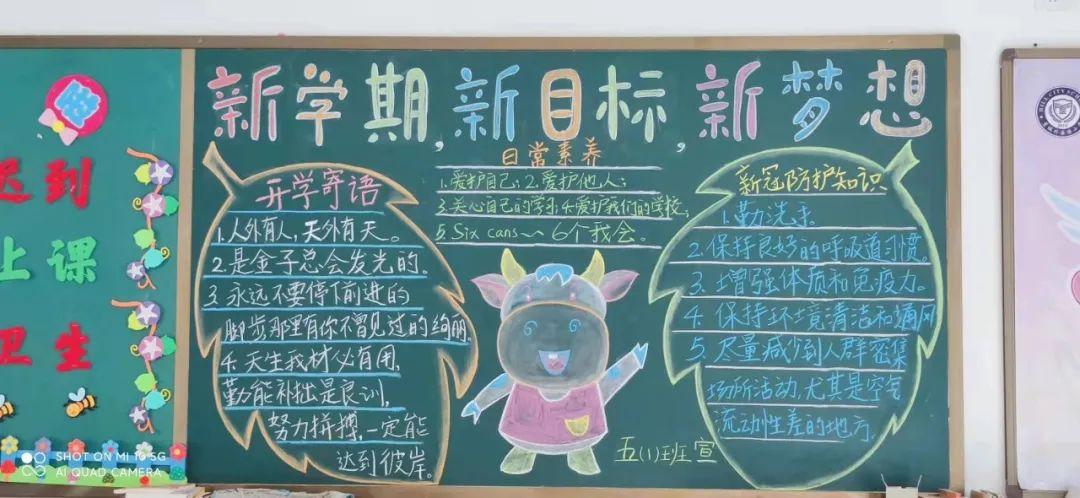 新学期,新目标,新梦想
迟到
上课
卫生
开学寄语
1.人外有人,天外有天。
2.是金子总会发光的。
3.永远不要停下前进的
脚步那里有你不曾见过的绚丽
4.天生我材必有用,
勤能补拙是良训,
努力拼搏,一定能
达到彼岸。
日常素养
1.爱护自己;2.爱护他人;
3.关心自己的学习;4.爱护我们的学校;
5.Six cans~6个我会。
新冠防护知识
1.勤洗手。
2.保持良好的呼吸道习惯。
3.增强体质和免疫力。
4.保持环境清洁和通风
5.尽量减少到人群密集
场所活动,尤其是空气
流动性差的地方.
五(1)班宣
SHOT ON MI 10 5G
AI QUAD CAMERA